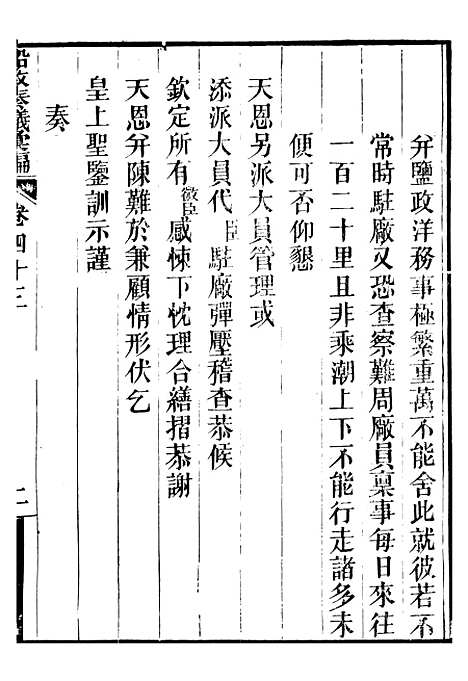 弁鹽政洋務事極繁重萬不能舍此就彼若不
常時駐廠又恐查察難周廠員稟事每日來往
一百二十里且非乘潮上下不能行走諸多未
便可否仰懇
天恩另派大員管理或
添派大員代臣駐廠彈壓稽查恭候
欽定所有微臣感悚下忱理合繕摺恭謝
天恩弁陳難於兼顧情形伏乞
皇上聖鑒訓示謹
奏
船政奏議彙編 卷四十三 二